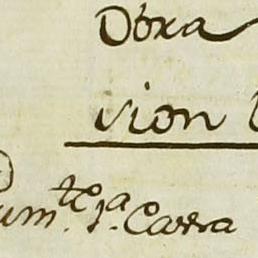 Obra
sion
um.te 1.a Carra